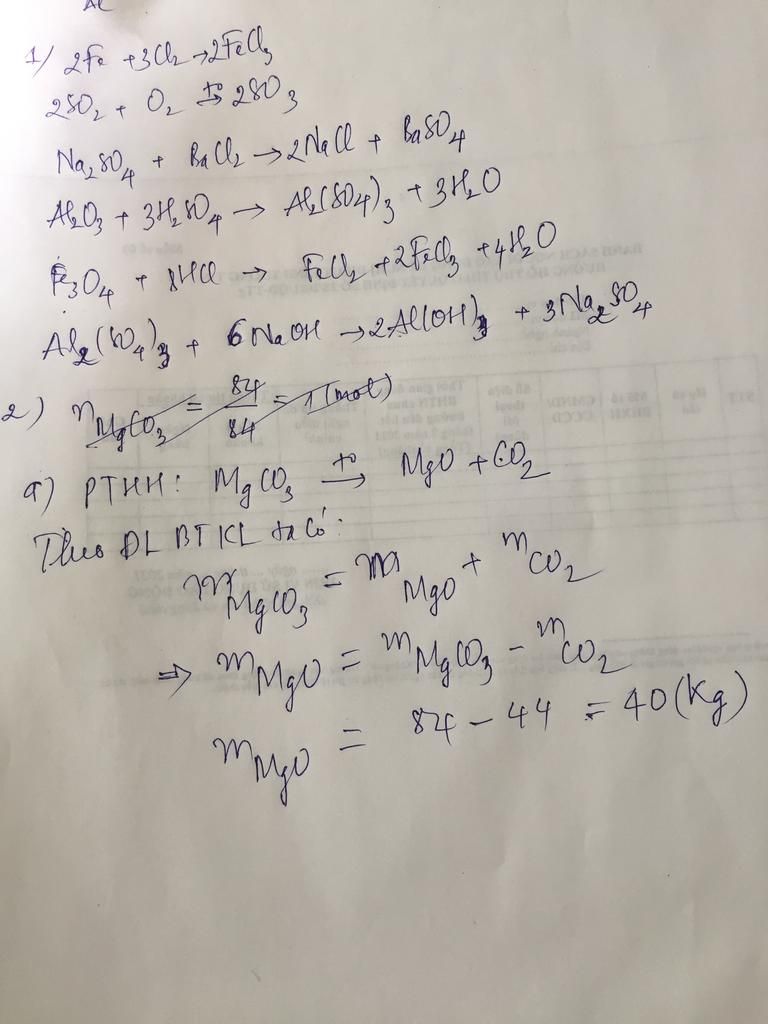 Al
1) 2Fe + 3Cl₂ → 2FeCl₃
2SO₂ + O₂ →^{t°} 2SO₃
Na₂SO₄ + BaCl₂ → 2NaCl + BaSO₄
Al₂O₃ + 3H₂SO₄ → Al₂(SO₄)₃ + 3H₂O
Fe₃O₄ + 8HCl → FeCl₂ + 2FeCl₃ + 4H₂O
Al₂(SO₄)₃ + 6NaOH → 2Al(OH)₃ + 3Na₂SO₄
2) n_{MgCO₃} = 84/84 = 1 (mol)
a) PTHH: MgCO₃ →^{t°} MgO + CO₂
Theo ĐL BTKL ta có:
m_{MgCO₃} = m_{MgO} + m_{CO₂}
⇒ m_{MgO} = m_{MgCO₃} - m_{CO₂}
m_{MgO} = 84 - 44 = 40 (Kg)